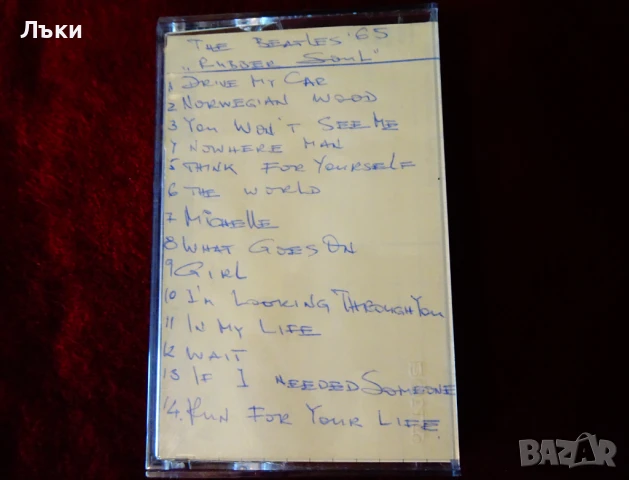 Лъки
THE BEATLES '65
"RUBBER SOUL"
1 DRIVE MY CAR
2 NORWEGIAN WOOD
3 YOU WON'T SEE ME
4 NOWHERE MAN
5 THINK FOR YOURSELF
6 THE WORLD
7 MICHELLE
8 WHAT GOES ON
9 GIRL
10 I'M LOOKING THROUGH YOU
11 IN MY LIFE
12 WAIT
13 IF I NEEDED SOMEONE
14. RUN FOR YOUR LIFE.
BAZAR